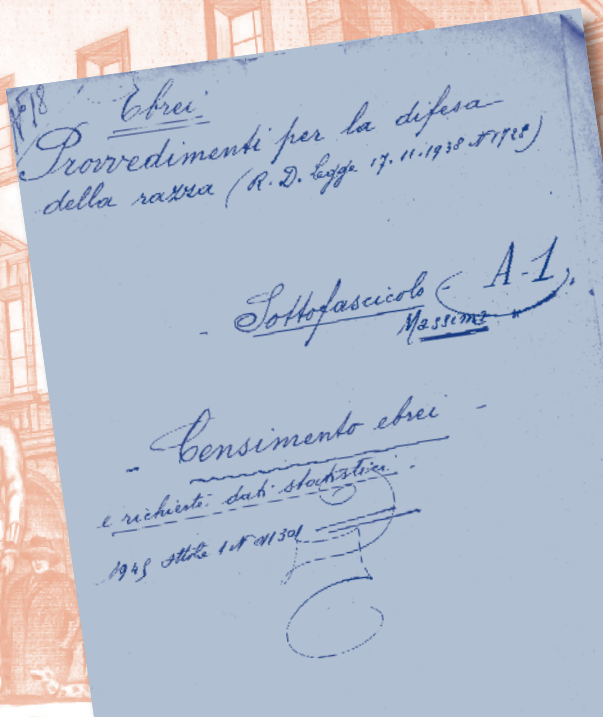 N° 18
Ebrei
Provvedimenti per la difesa
della razza (R. D. Legge 17.11.1938 N° 1728)
- Sottofascicolo - A-1
Massima
- Censimento ebrei -
e richieste dati statistici -